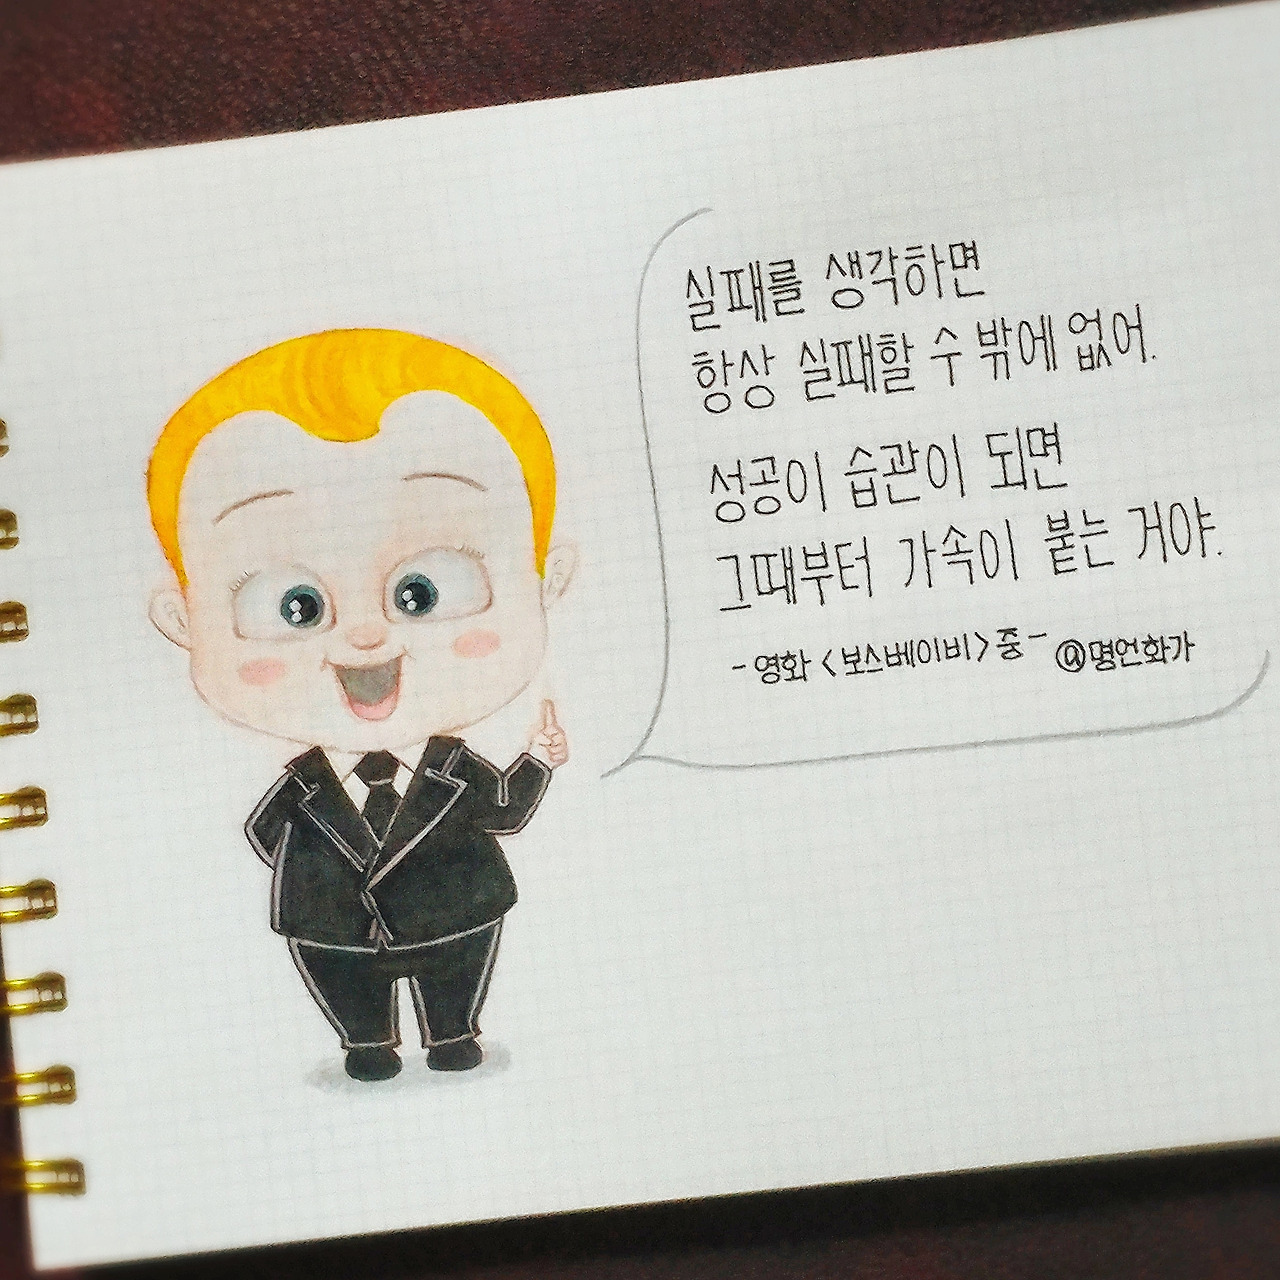 실패를 생각하면
항상 실패할 수 밖에 없어.
성공이 습관이 되면
그때부터 가속이 붙는 거야.
- 영화 <보스베이비> 중 - @명언화가